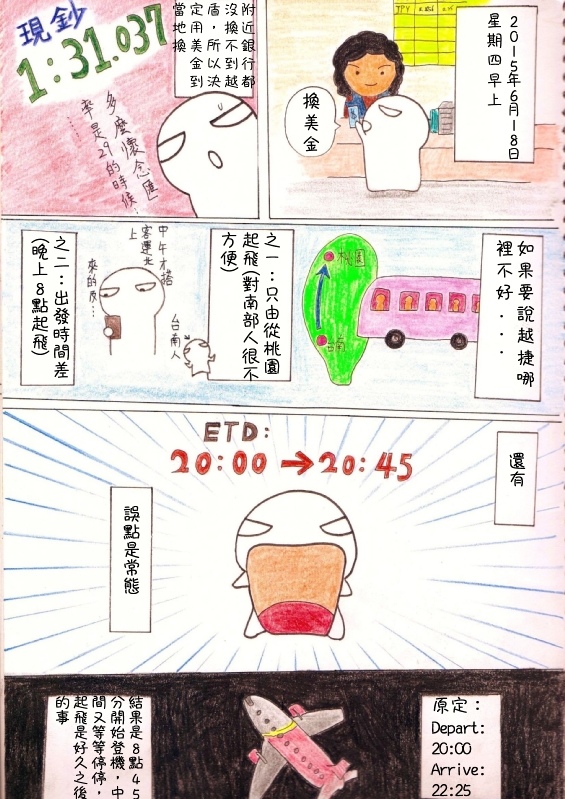 2015年6月18日
星期四早上
JPY
換美金
附近銀行都
沒換不到越
盾，所以決
定用美金到
當地換
現鈔
1:31.037
多麼懷念匯
率是29的時候…
……
如果要說越捷哪
裡不好...
桃園
台南
之一：只由從桃園
起飛(對南部人很不
方便)
台南人
中午才搭
客運北
上
來的及…
之二：出發時間差
(晚上8點起飛)
還有
ETD:
20:00→20:45
誤點是常態
原定：
Depart:
20:00
Arrive:
22:25
結果是8點45
分開始登機，中
間又等等停停，
起飛是好久之後
的事